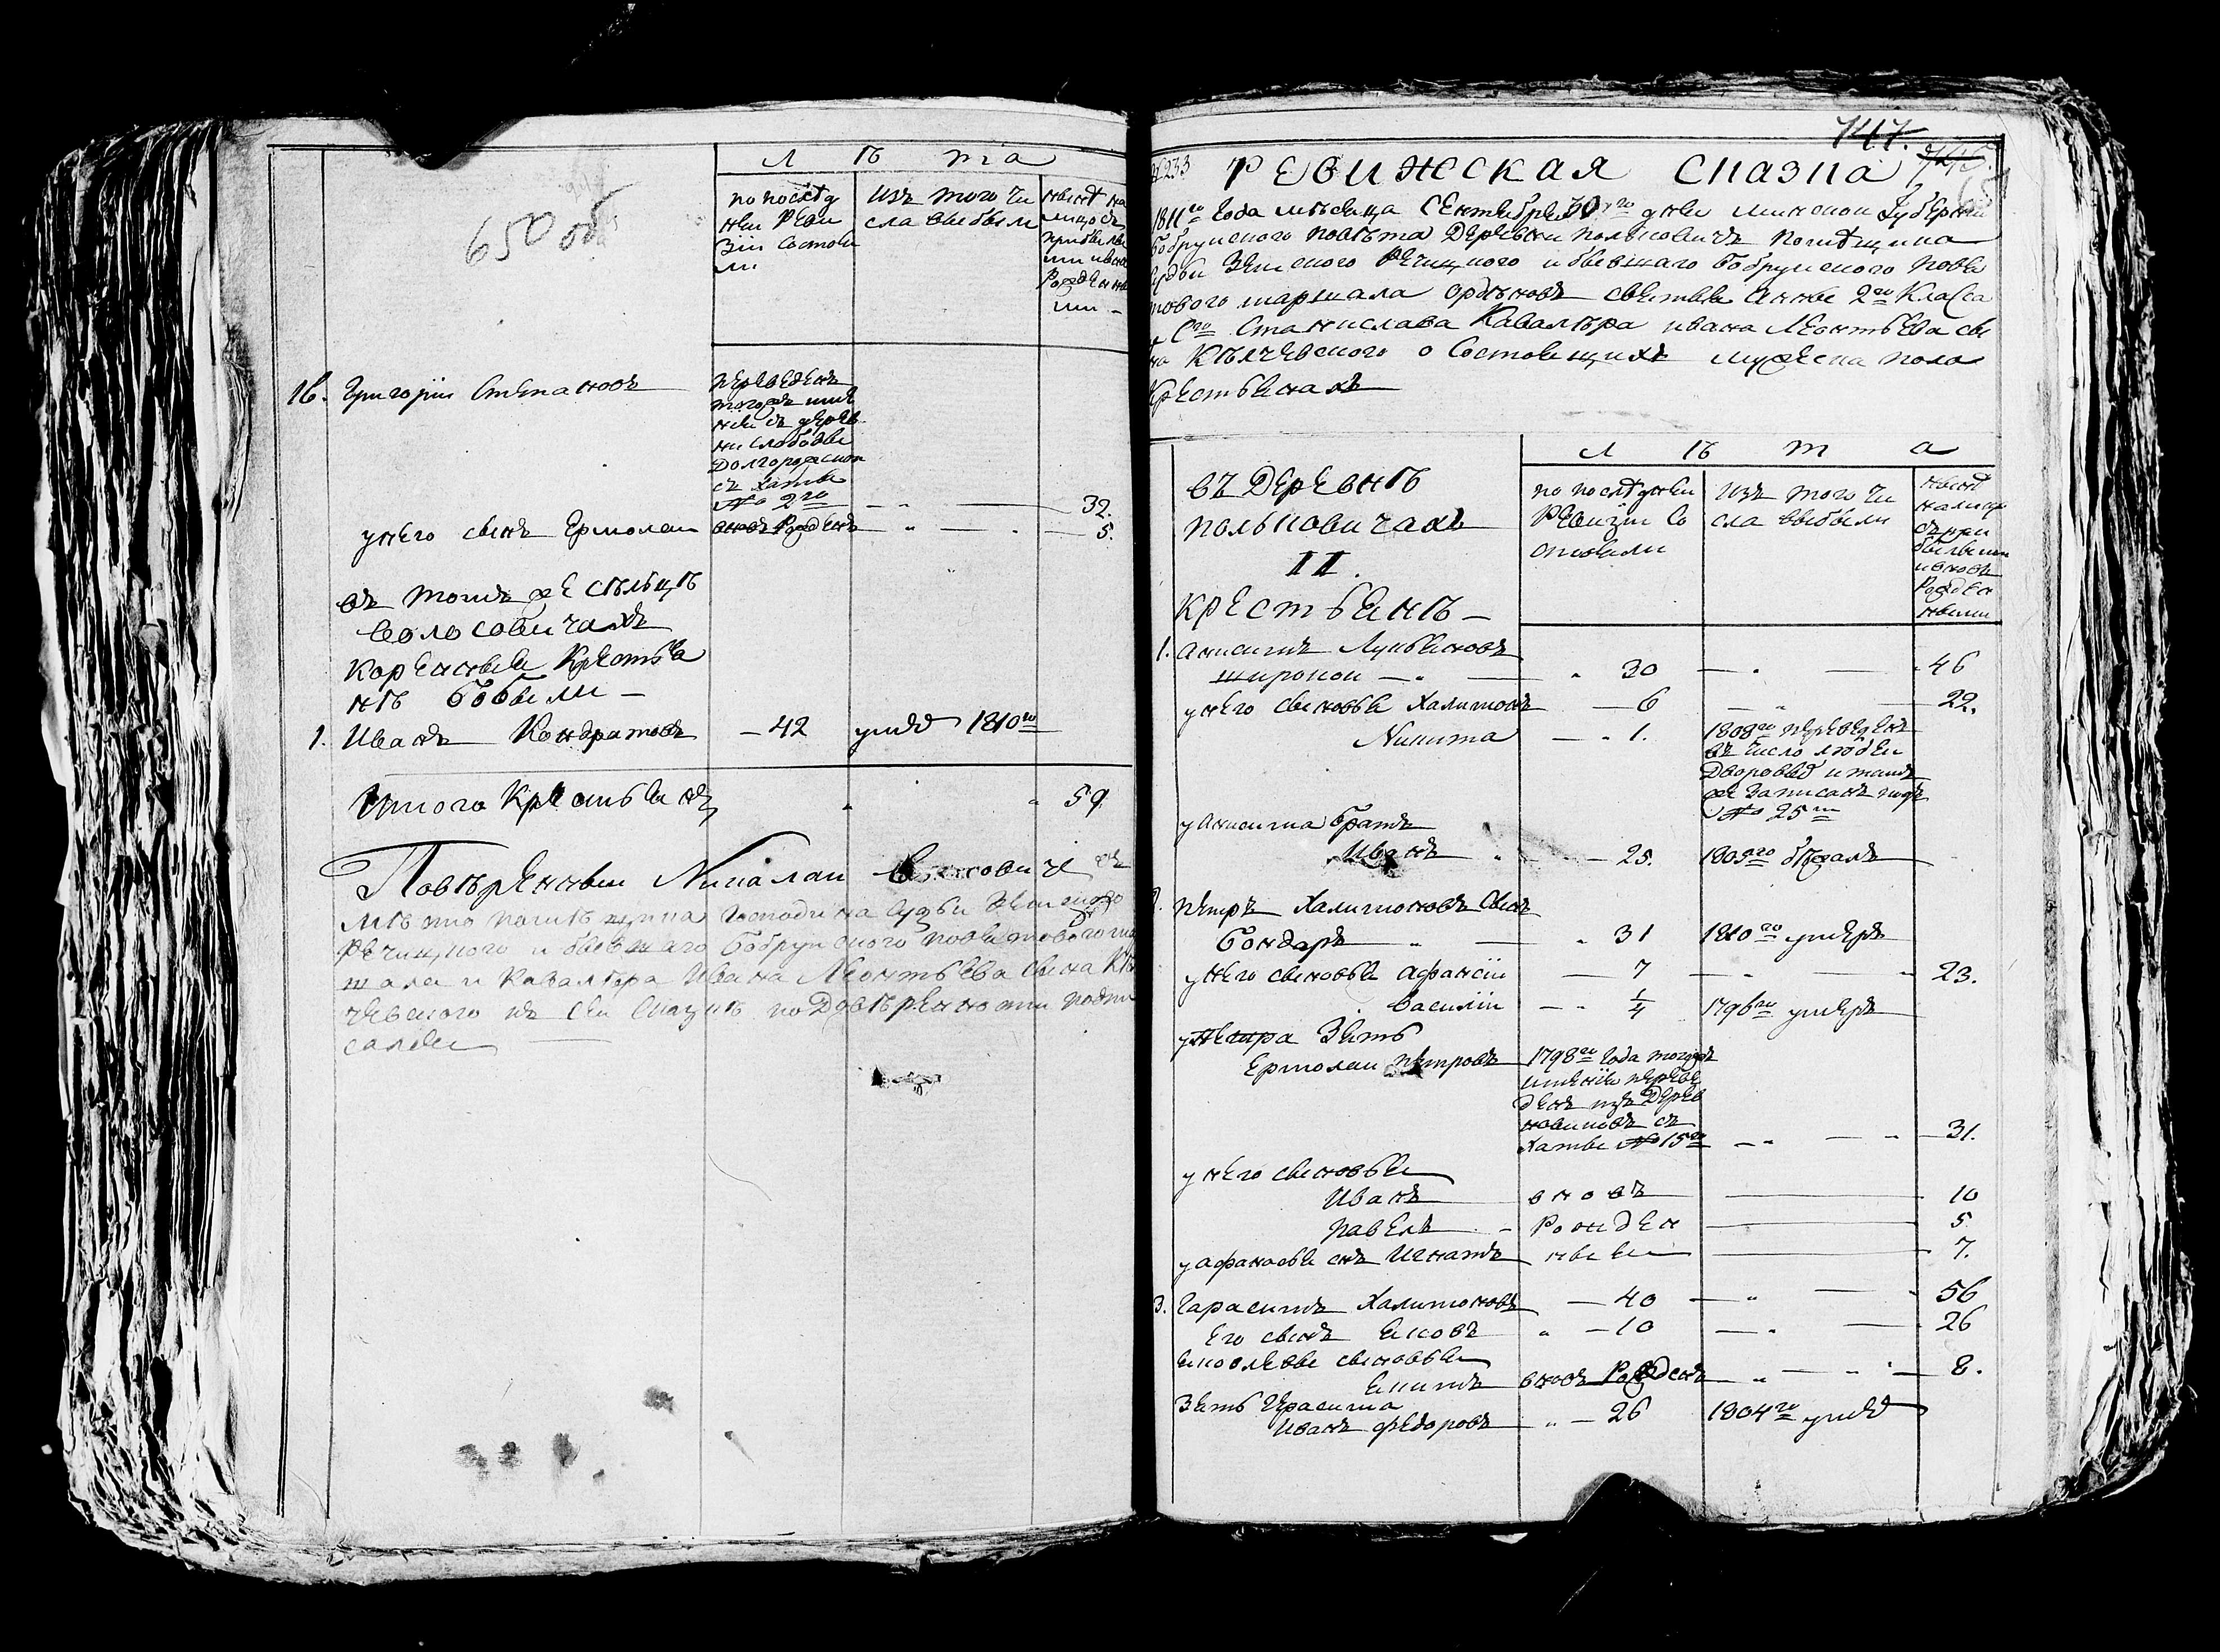 650 об
Л ѣ та
по послѣд
ней Реви
зіи состоя
ли
изъ того чи
сла выбыли
нынѣ на
лицо съ
прибылы
ми и вно
Рожденны
ми
16. Григорій Степановъ
переведенъ
тогожъ име
нія съ дерев
ни Слободы
Долгорожской
съ хаты
№ 2го
32.
у него сынъ Ермолай вновь Рожденъ 5.
въ томъ же сѣльцѣ
Волосовичахъ
Коренныя Крестья
нѣ бобыли
1. Иванъ Кондратовъ 42 умре 1810го
Итого Крестьянъ 59.
Повѣренный Николай
мѣсто помѣщика Господина Судьи Земского
Речицкого и бывшаго Бобруйского повѣтового мар
шала и Кавалѣра Ивана Леонтьева сына Кѣл
чевского къ сей сказкѣ по довѣренности подпи
сался
747.
№ 233 РЕВИЖСКАЯ СКАЗКА
1811го года мѣсяца Сентября 30го дня Минской Губерніи
Бобруйского повѣта Деревни Польковичъ помѣщика
Судьи Земского Речицкого и бывшаго Бобруйского повѣ
тового маршала орденовъ святыя Анны 2го Класса
и Сго Станислава Кавалѣра Ивана Леонтьева сы
на Кѣлчевского о состоящихъ мужеска пола
Крестьянахъ
въ Деревнѣ
Польковичахъ
II.
Крестьянѣ
Л ѣ т а
по послѣдней
Ревизіи со
стояли
изъ того чи
сла выбыли
нынѣ
налицо
съ при
былыми
и вновь
Рожден
ными
1. Анисимъ Лукьяновъ
Широкой 30 46
у него сыновья Халимонъ 6 22.
Никита 1. 1808го переведенъ
въ число людей
дворовыхъ и тамъ
же записанъ подъ
№ 25м
у Анисима братъ
Иванъ 25. 1805го бѣжалъ
2. Петръ Халимоновъ сынъ
Бондарь 31 1810го умеръ
у него сыновья Афанасій 7 23.
Василій 1/4 1796го умеръ
у Петра зять
Ермолай Петровъ 1798го года тогожъ
имѣнія переве
денъ изъ Дерев
Новиковъ съ
хаты № 15го 31.
у него сыновья
Иванъ вновь 10
Павелъ Рожден 5
у Афанасья сынъ Игнатъ ные 7.
3. Гарасимъ Халимоновъ 40 56
Его сынъ Яковъ 10 26
Яковлевы сыновья
Якимъ вновь Рожденъ 8.
Зять Герасима
Иванъ Федоровъ 26 1804го умре